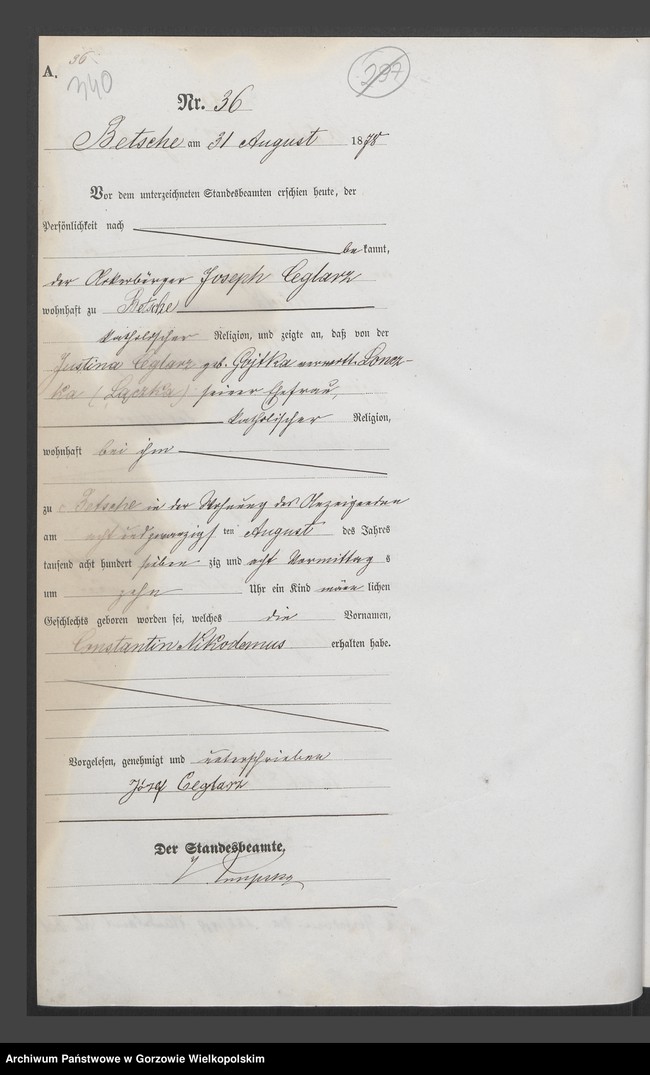 36.
A.
340
237
Nr. 36
Betsche am 31 August 1878
Vor dem unterzeichneten Standesbeamten erschien heute, der
Persönlichkeit nach
bekannt,
der Ackerbürger Joseph Ceglarz
wohnhaft zu Betsche
katholischer Religion, und zeigte an, daß von der
Justina Ceglarz geb. Gojtka verwittl. Loncz-
ka (Łączka) seiner Ehefrau,
katholischer Religion,
wohnhaft bei ihm
zu Betsche in der Wohnung des Anzeigenden
am acht und zwanzigsten August des Jahres
tausend acht hundert siebenzig und acht Vormittags
um zehn Uhr ein Kind männlichen
Geschlechts geboren worden sei, welches die Vornamen,
Constantin Nikodemus erhalten habe.
Vorgelesen, genehmigt und unterschrieben
Józef Ceglarz
Der Standesbeamte,
Archiwum Państwowe w Gorzowie Wielkopolskim